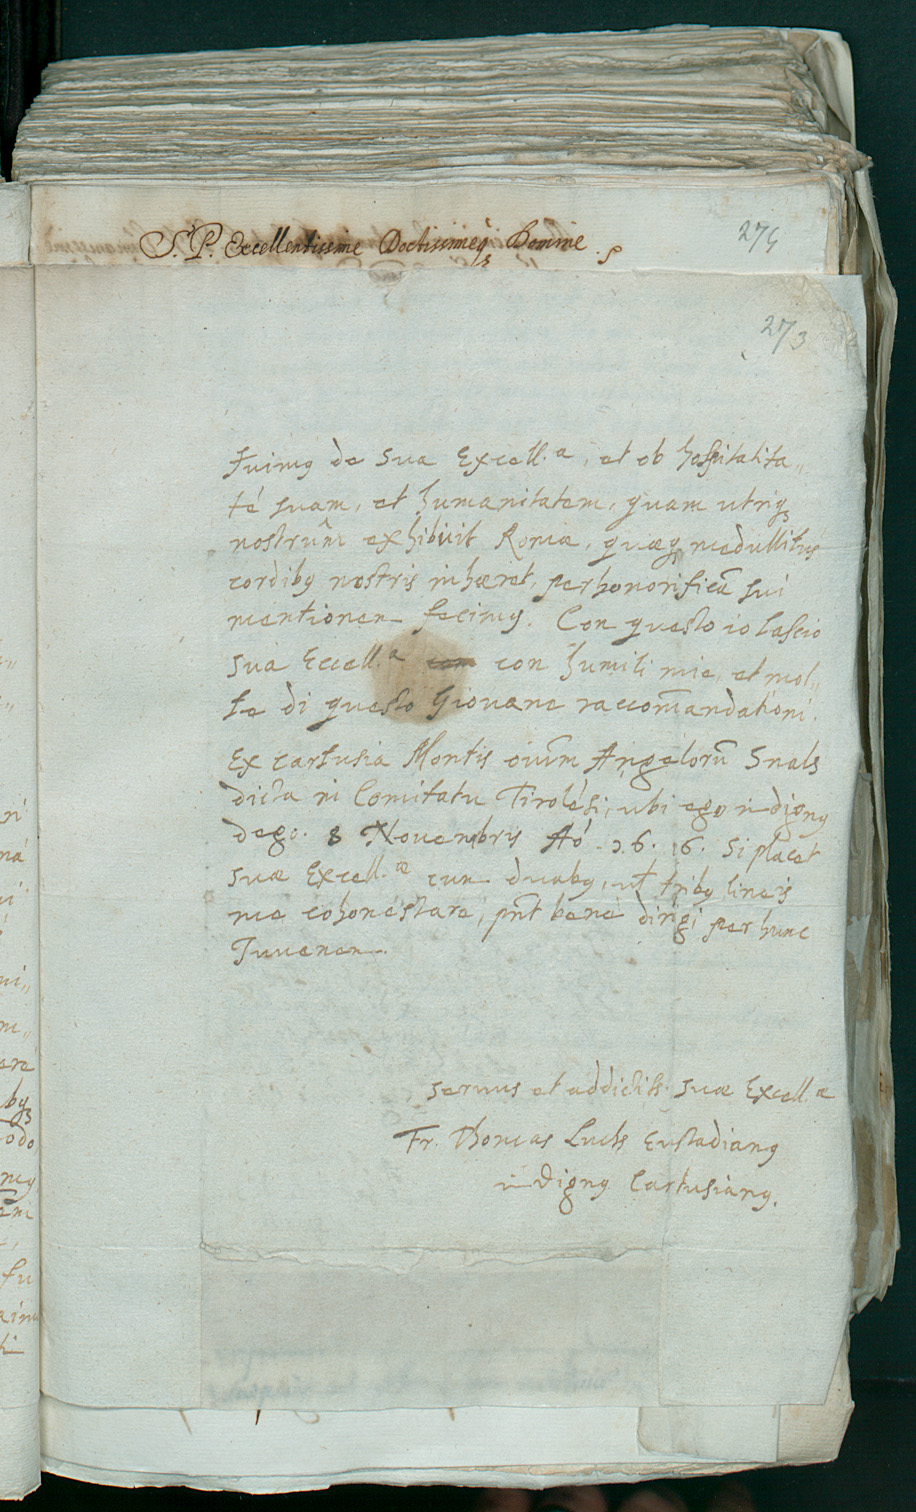 S. P. Excellentissime Doctissimeq₃ Domine.
275
273
Fuimꝰ de Sua Excell.ª, et ob hospitalita„
té suam, et humanitatem, quam utriq₃
nostrûm exhibuit Romæ, quæq₃ medullitus
cordibꝰ nostris inhæret, perhonorificā sui
mentionem fecimꝰ. Con questo io lascio
sua Eccell.ª con humili mie, et mol„
te di questo Giovane raccom̄andationi.
Ex cartusia Montis om̄m Angelorū Snals
dicta in Comitatu Tirolési, ubi ego indignꝰ
dego. 8 Novembris Aó .16.16. Si placet
suæ Excell.æ cum duabꝰ, ut tribꝰ lineis
me cohonéstare, pn̄t bene dirigi per hunc
Juvenem.
servus et addictꝰ suæ Excell.æ
Fr. Thomas Luchs Eustadianꝰ
indignꝰ Cartusianꝰ.